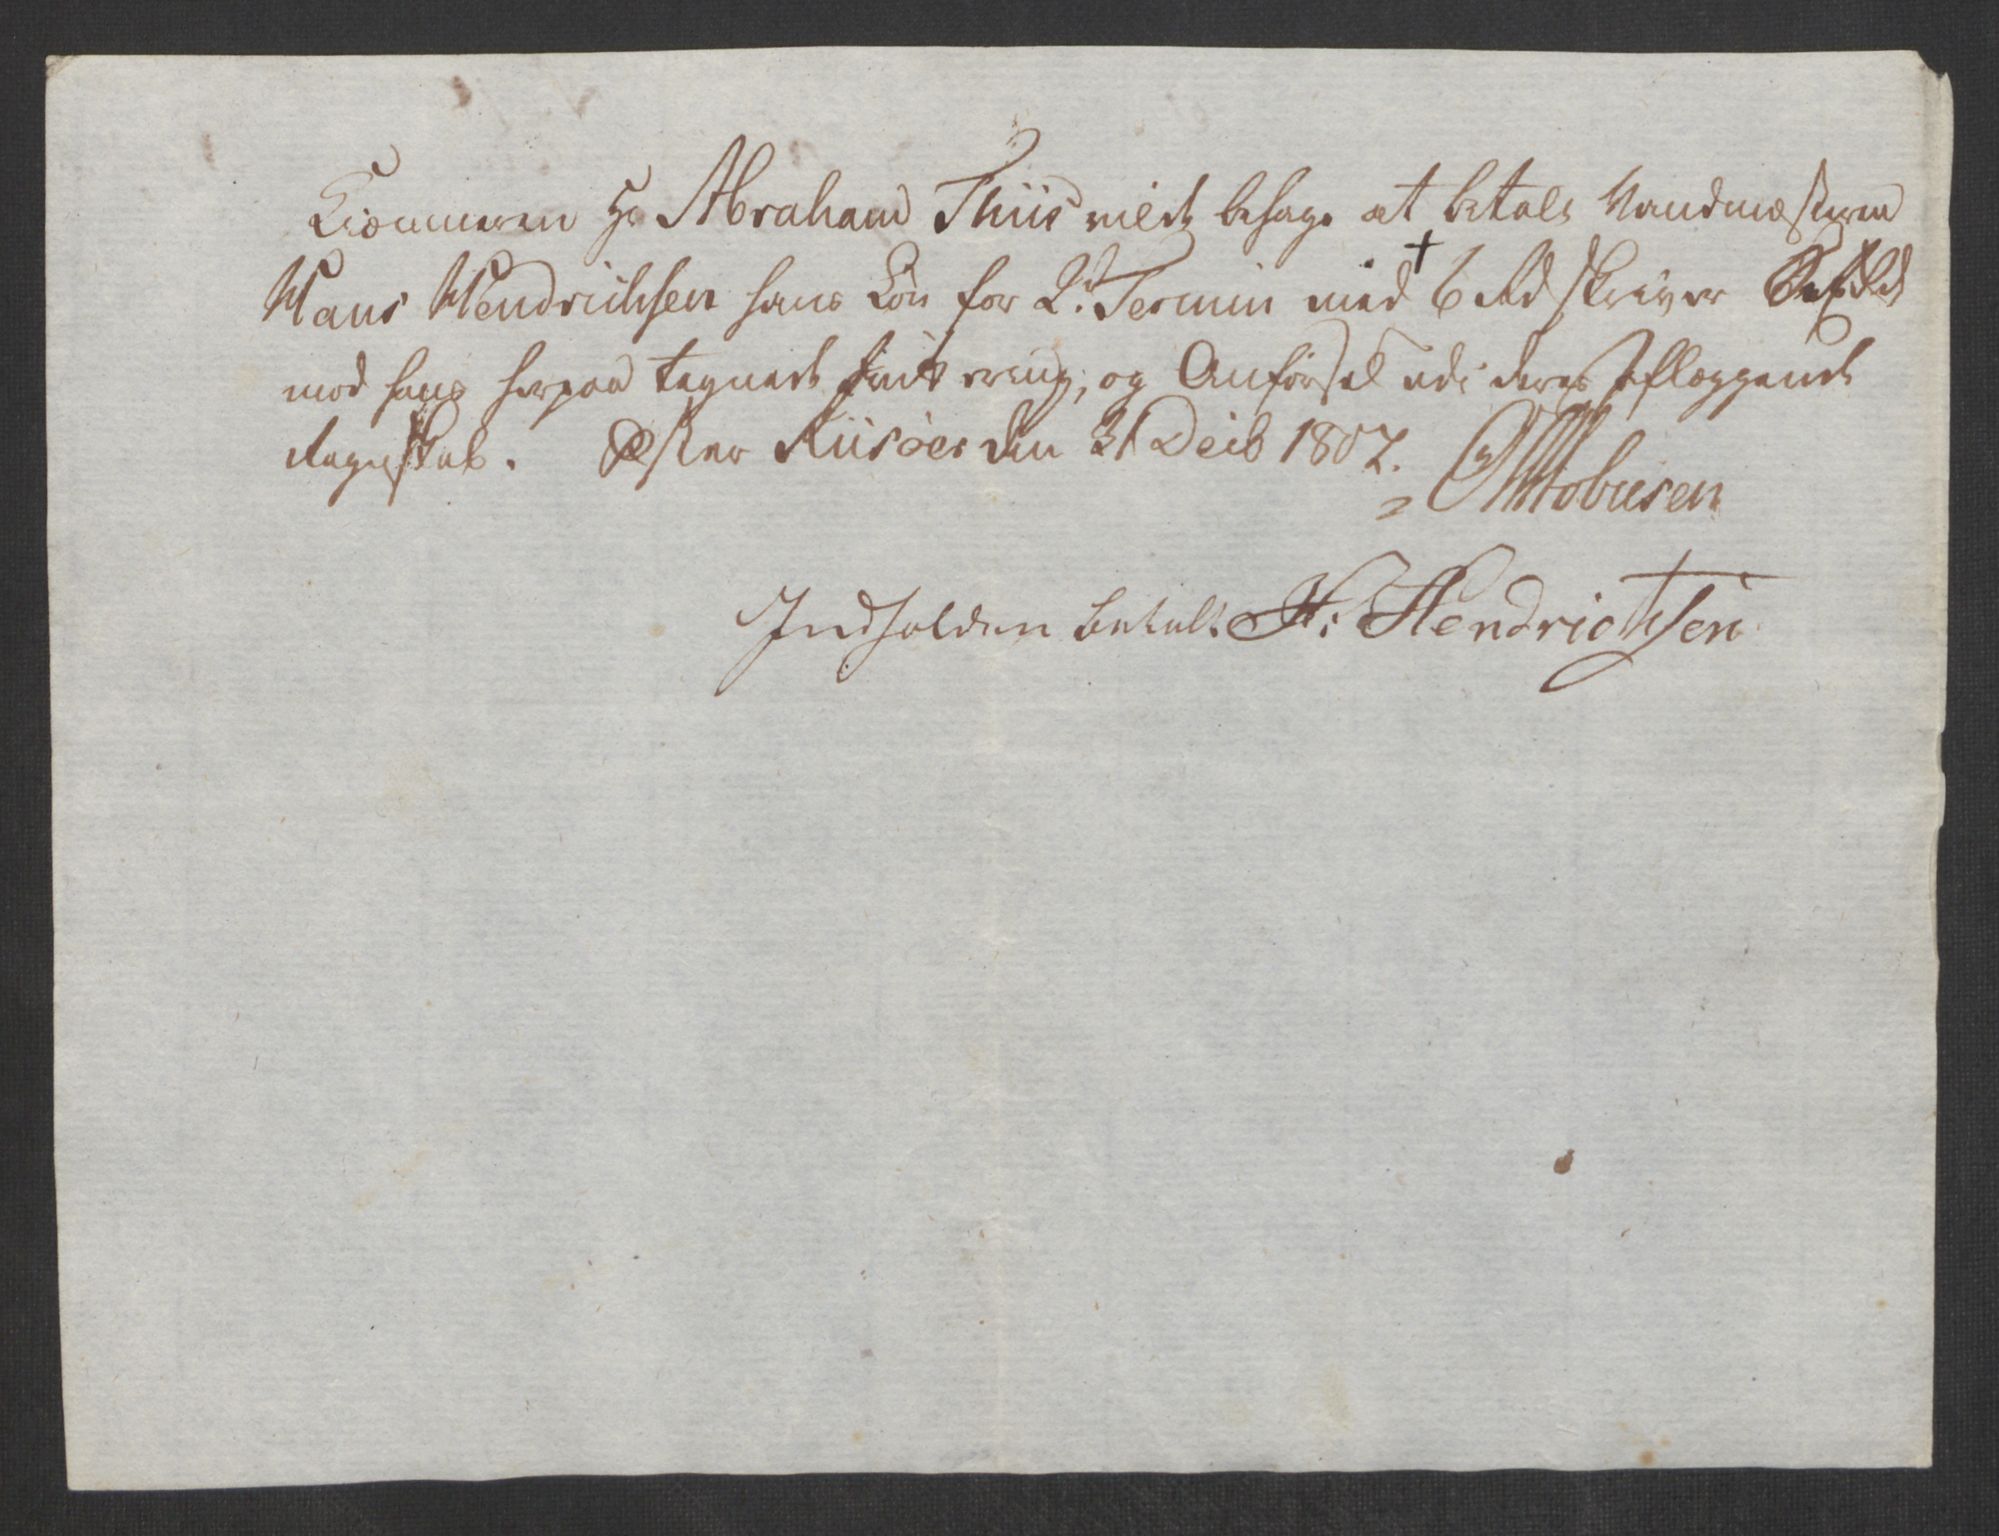 Kiæmneren Hr Abraham Thiis vilde behage at betale Vandmesteren
Hans Hendrichsen hans Løn for 2d Termin med 6 Rd skriver Sex Rd
mod hans herpaa tegnede qvittering, og Anførsel udi deres aflæggende
Regnskab. Øster Riisøer den 31 Decb 1807.
Indholden betalt H: Hendrichsen